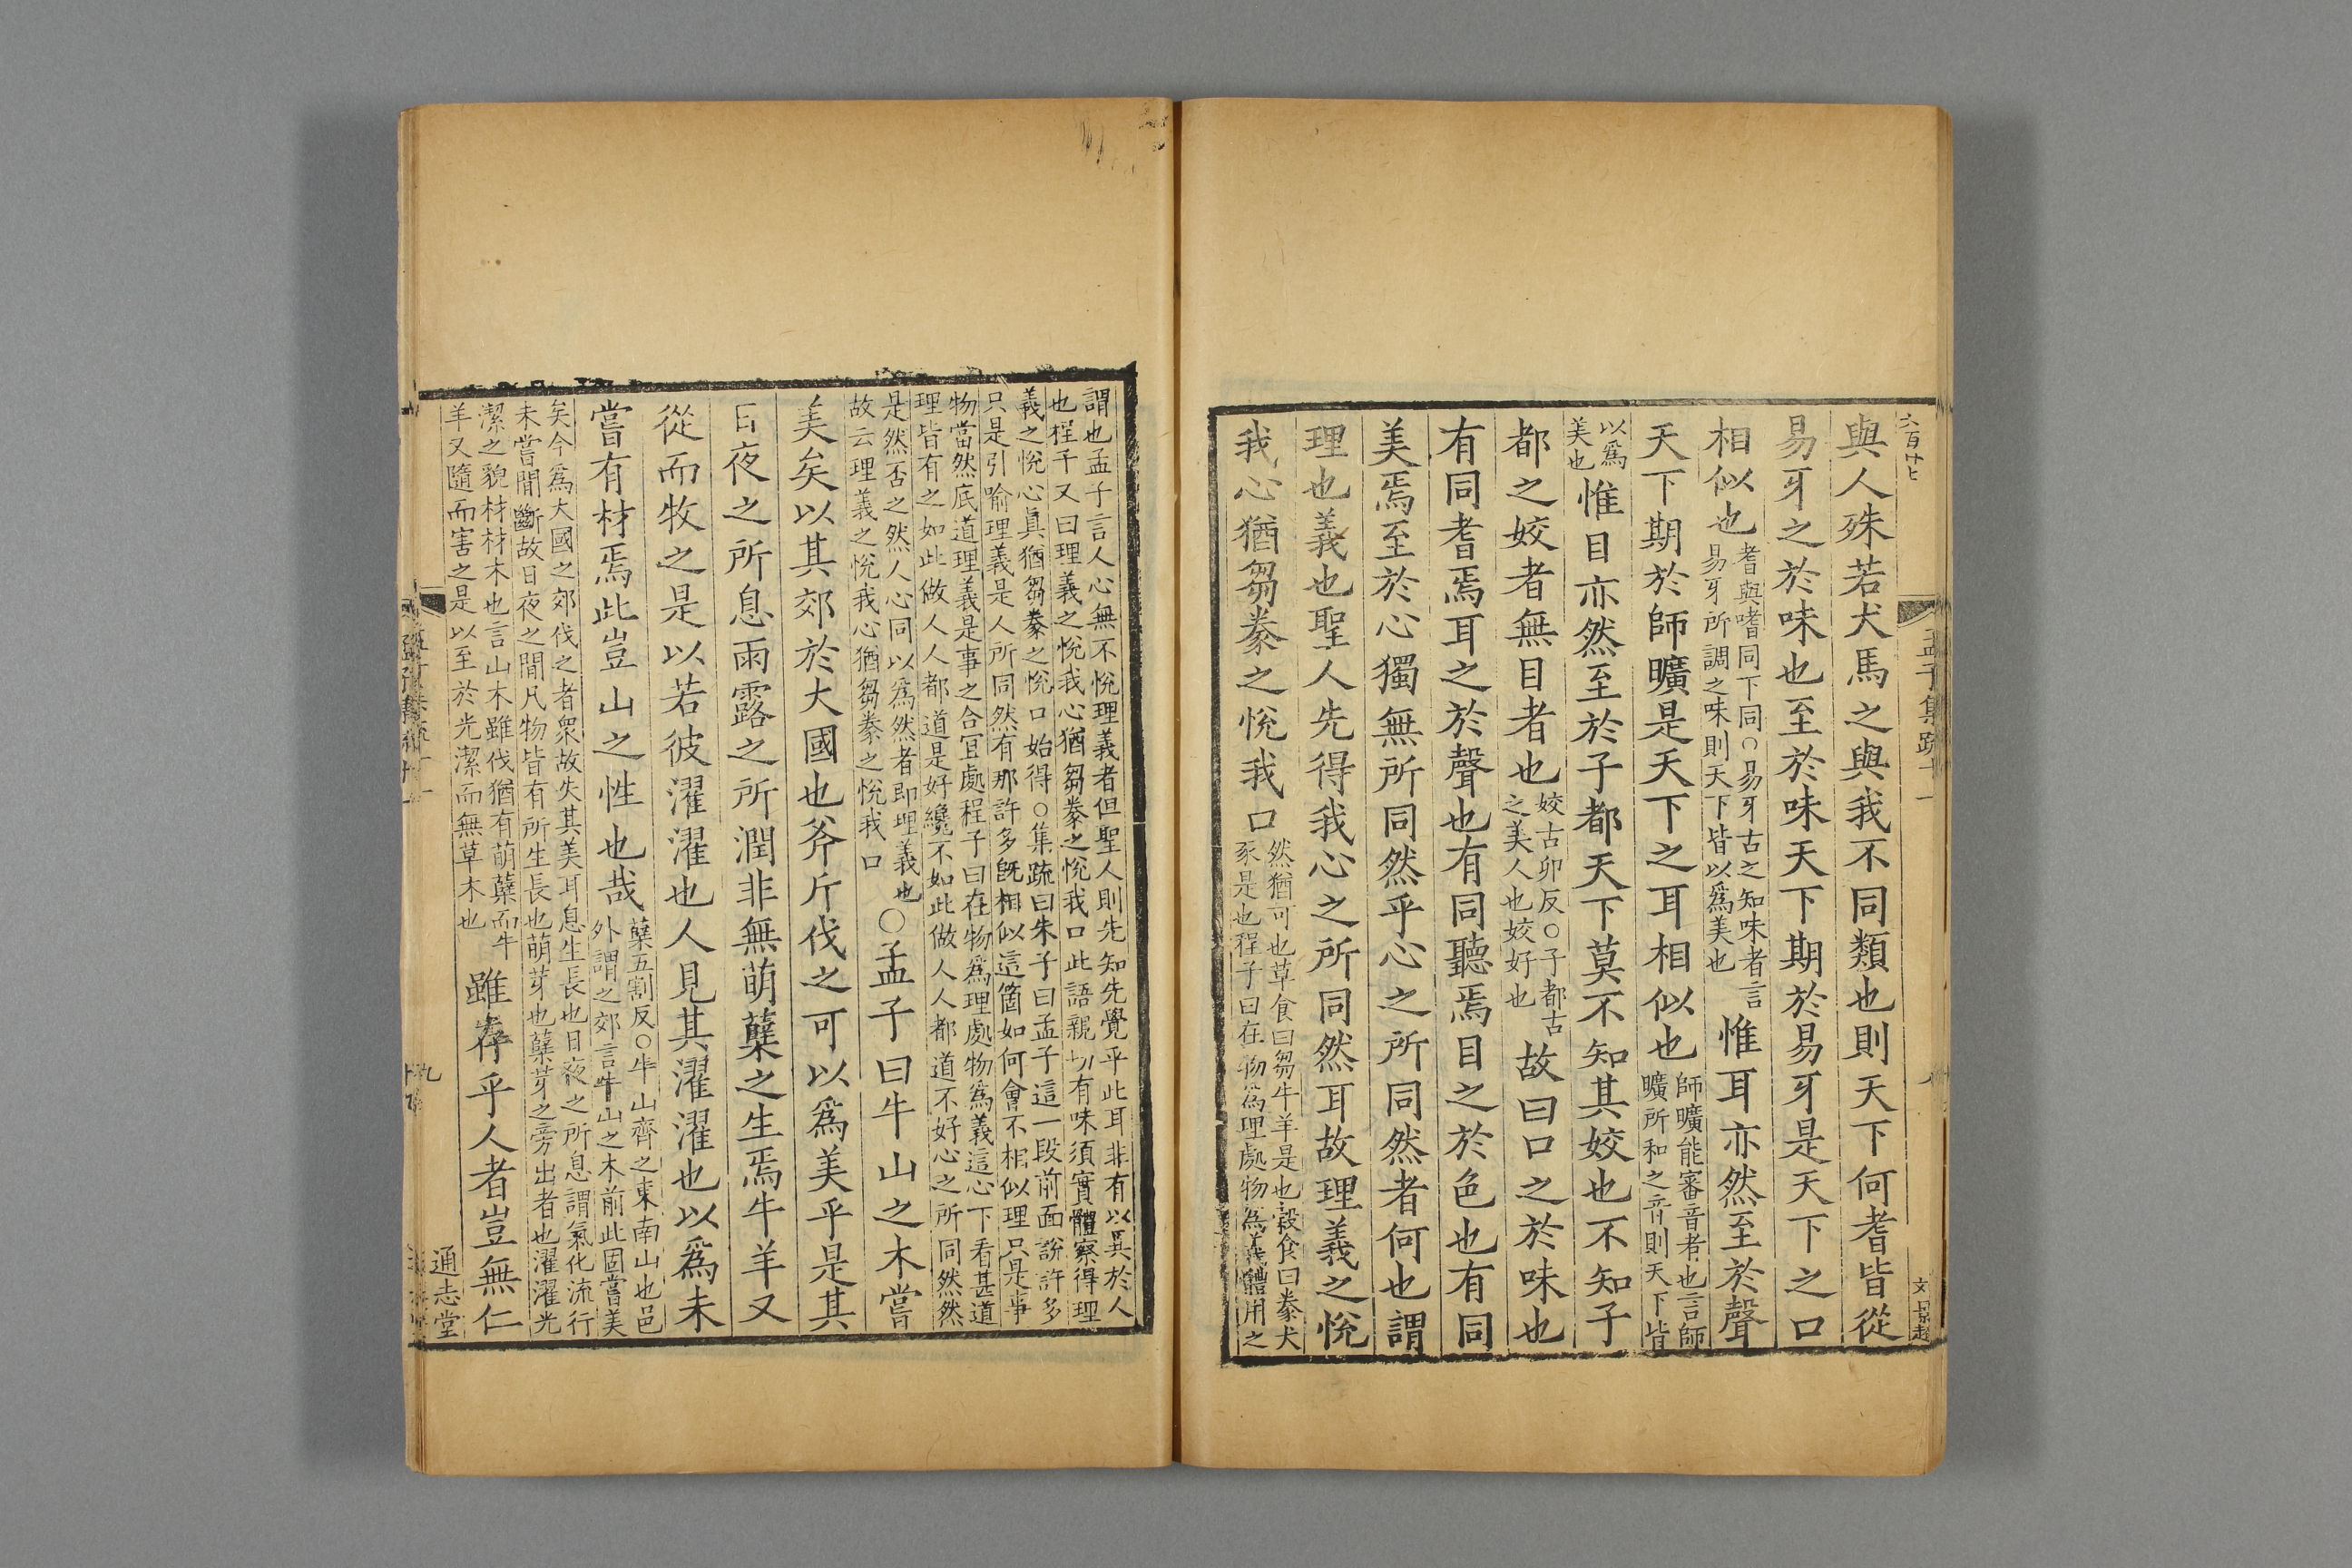 六百廿七
孟子集疏十一
與人殊若犬馬之與我不同類也則天下何耆皆從
易牙之於味也至於味天下期於易牙是天下之口
相似也
耆與嗜同下同○易牙古之知味者言
易牙所調之味則天下皆以爲美也
惟耳亦然至於聲
天下期於師曠是天下之耳相似也
師曠能審音者也言師
曠所和之音則天下皆
以爲
美也
惟目亦然至於子都天下莫不知其姣也不知子
都之姣者無目者也
姣古卯反○子都古
之美人也姣好也
故曰口之於味也
有同耆焉耳之於聲也有同聽焉目之於色也有同
美焉至於心獨無所同然乎心之所同然者何也謂
理也義也聖人先得我心之所同然耳故理義之悅
我心猶芻豢之悅我口
然猶可也草食曰芻牛羊是也糓食曰豢犬
豕是也程子曰在物爲理處物爲義體用之
謂也孟子言人心無不悅理義者但聖人則先知先覺乎此耳非有以異於人
也程子又曰理義之悅我心猶芻豢之悅我口此語親切有味須實體察得理
義之悅心眞猶芻豢之悅口始得○集疏曰朱子曰孟子這一段前面說許多
只是引喻理義是人所同然有那許多旣相似這箇如何會不相似理只是事
物當然底道理義是事之合宜處程子曰在物爲理處物爲義這心下看甚道
理皆有之如此做人人都道是好纔不如此做人人都道不好心之所同然然
是然否之然人心同以爲然者即理義也
故云理義之悅我心猶芻豢之悅我口
○孟子曰牛山之木嘗
美矣以其郊於大國也斧斤伐之可以爲美乎是其
日夜之所息雨露之所潤非無萌蘖之生焉牛羊又
從而牧之是以若彼濯濯也人見其濯濯也以爲未
嘗有材焉此豈山之性也哉
蘖五割反○牛山齊之東南山也邑
外謂之郊言牛山之木前此固嘗美
矣今爲大國之郊伐之者衆故失其美耳息生長也日夜之所息謂氣化流行
未嘗間斷故日夜之間凡物皆有所生長也萌芽也蘖芽之旁出者也濯濯光
潔之貌材材木也言山木雖伐猶有萌蘖而牛
羊又隨而害之是以至於光潔而無草木也
雖存乎人者豈無仁
九
通志堂